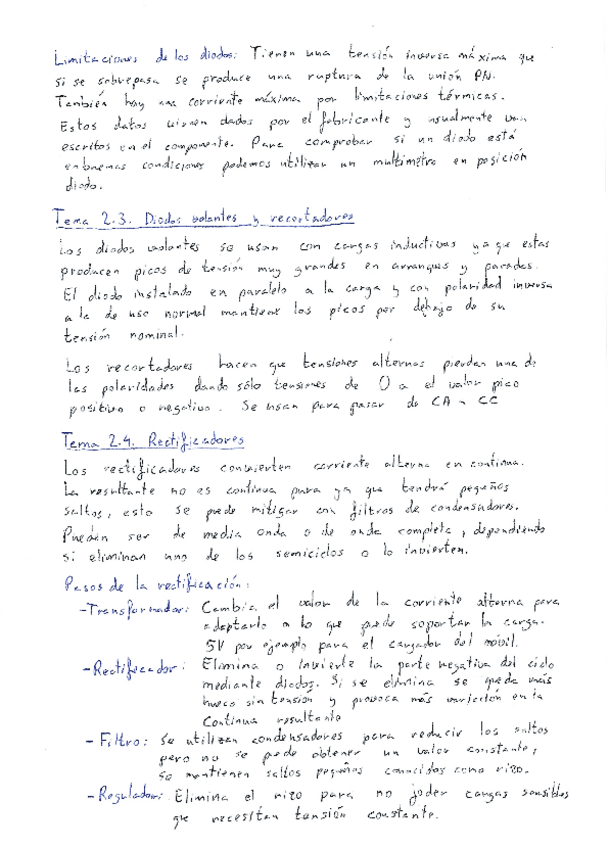 Limitaciones de los diodos: Tienen una tensión inversa máxima que
si se sobrepasa se produce una ruptura de la unión PN.
También hay una corriente máxima por limitaciones térmicas.
Estos datos vienen dados por el fabricante y usualmente van
escritos en el componente. Para comprobar si un diodo está
en buenas condiciones podemos utilizar un multímetro en posición
diodo.
Tema 2.3. Diodos volantes y recortadores
Los diodos volantes se usan con cargas inductivas ya que estas
producen picos de tensión muy grandes en arranques y paradas.
El diodo instalado en paralelo a la carga y con polaridad inversa
a la de uso normal mantiene los picos por debajo de su
tensión nominal.
Los recortadores hacen que tensiones alternas pierdan una de
las polaridades dando sólo tensiones de 0 a el valor pico
positivo o negativo. Se usan para pasar de CA a CC
Tema 2.4. Rectificadores
Los rectificadores convierten corriente alterna en continua.
La resultante no es continua pura ya que tendrá pequeños
saltos, esto se puede mitigar con filtros de condensadores.
Pueden ser de media onda o de onda completa, dependiendo
si eliminan uno de los semiciclos o lo invierten.
Pasos de la rectificación:
-Transformador: Cambia el valor de la corriente alterna para
adaptarlo a lo que puede soportar la carga.
5V por ejemplo para el cargador del móvil.
-Rectificador: Elimina o invierte la parte negativa del ciclo
mediante diodos. Si se elimina se queda más
hueco sin tensión y provoca más variación en la
continua resultante
- Filtro: Se utilizan condensadores para reducir los saltos
pero no se puede obtener un valor constante,
se mantienen saltos pequeños conocidos como rizo.
-Regulador: Elimina el rizo para no joder cargas sensibles
que necesitan tensión constante.